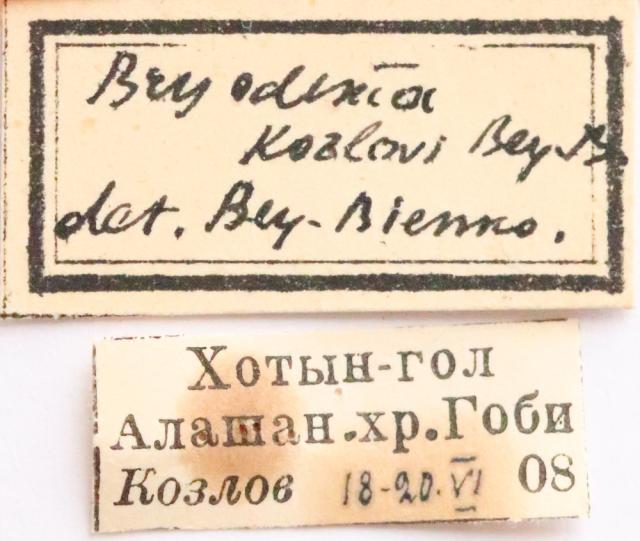 Bryodemia
Kozlovi Bey-B.
det. Bey-Bienko.
Хотын-гол
Алашан.хр.Гоби
Козлов 18-20.VI 08